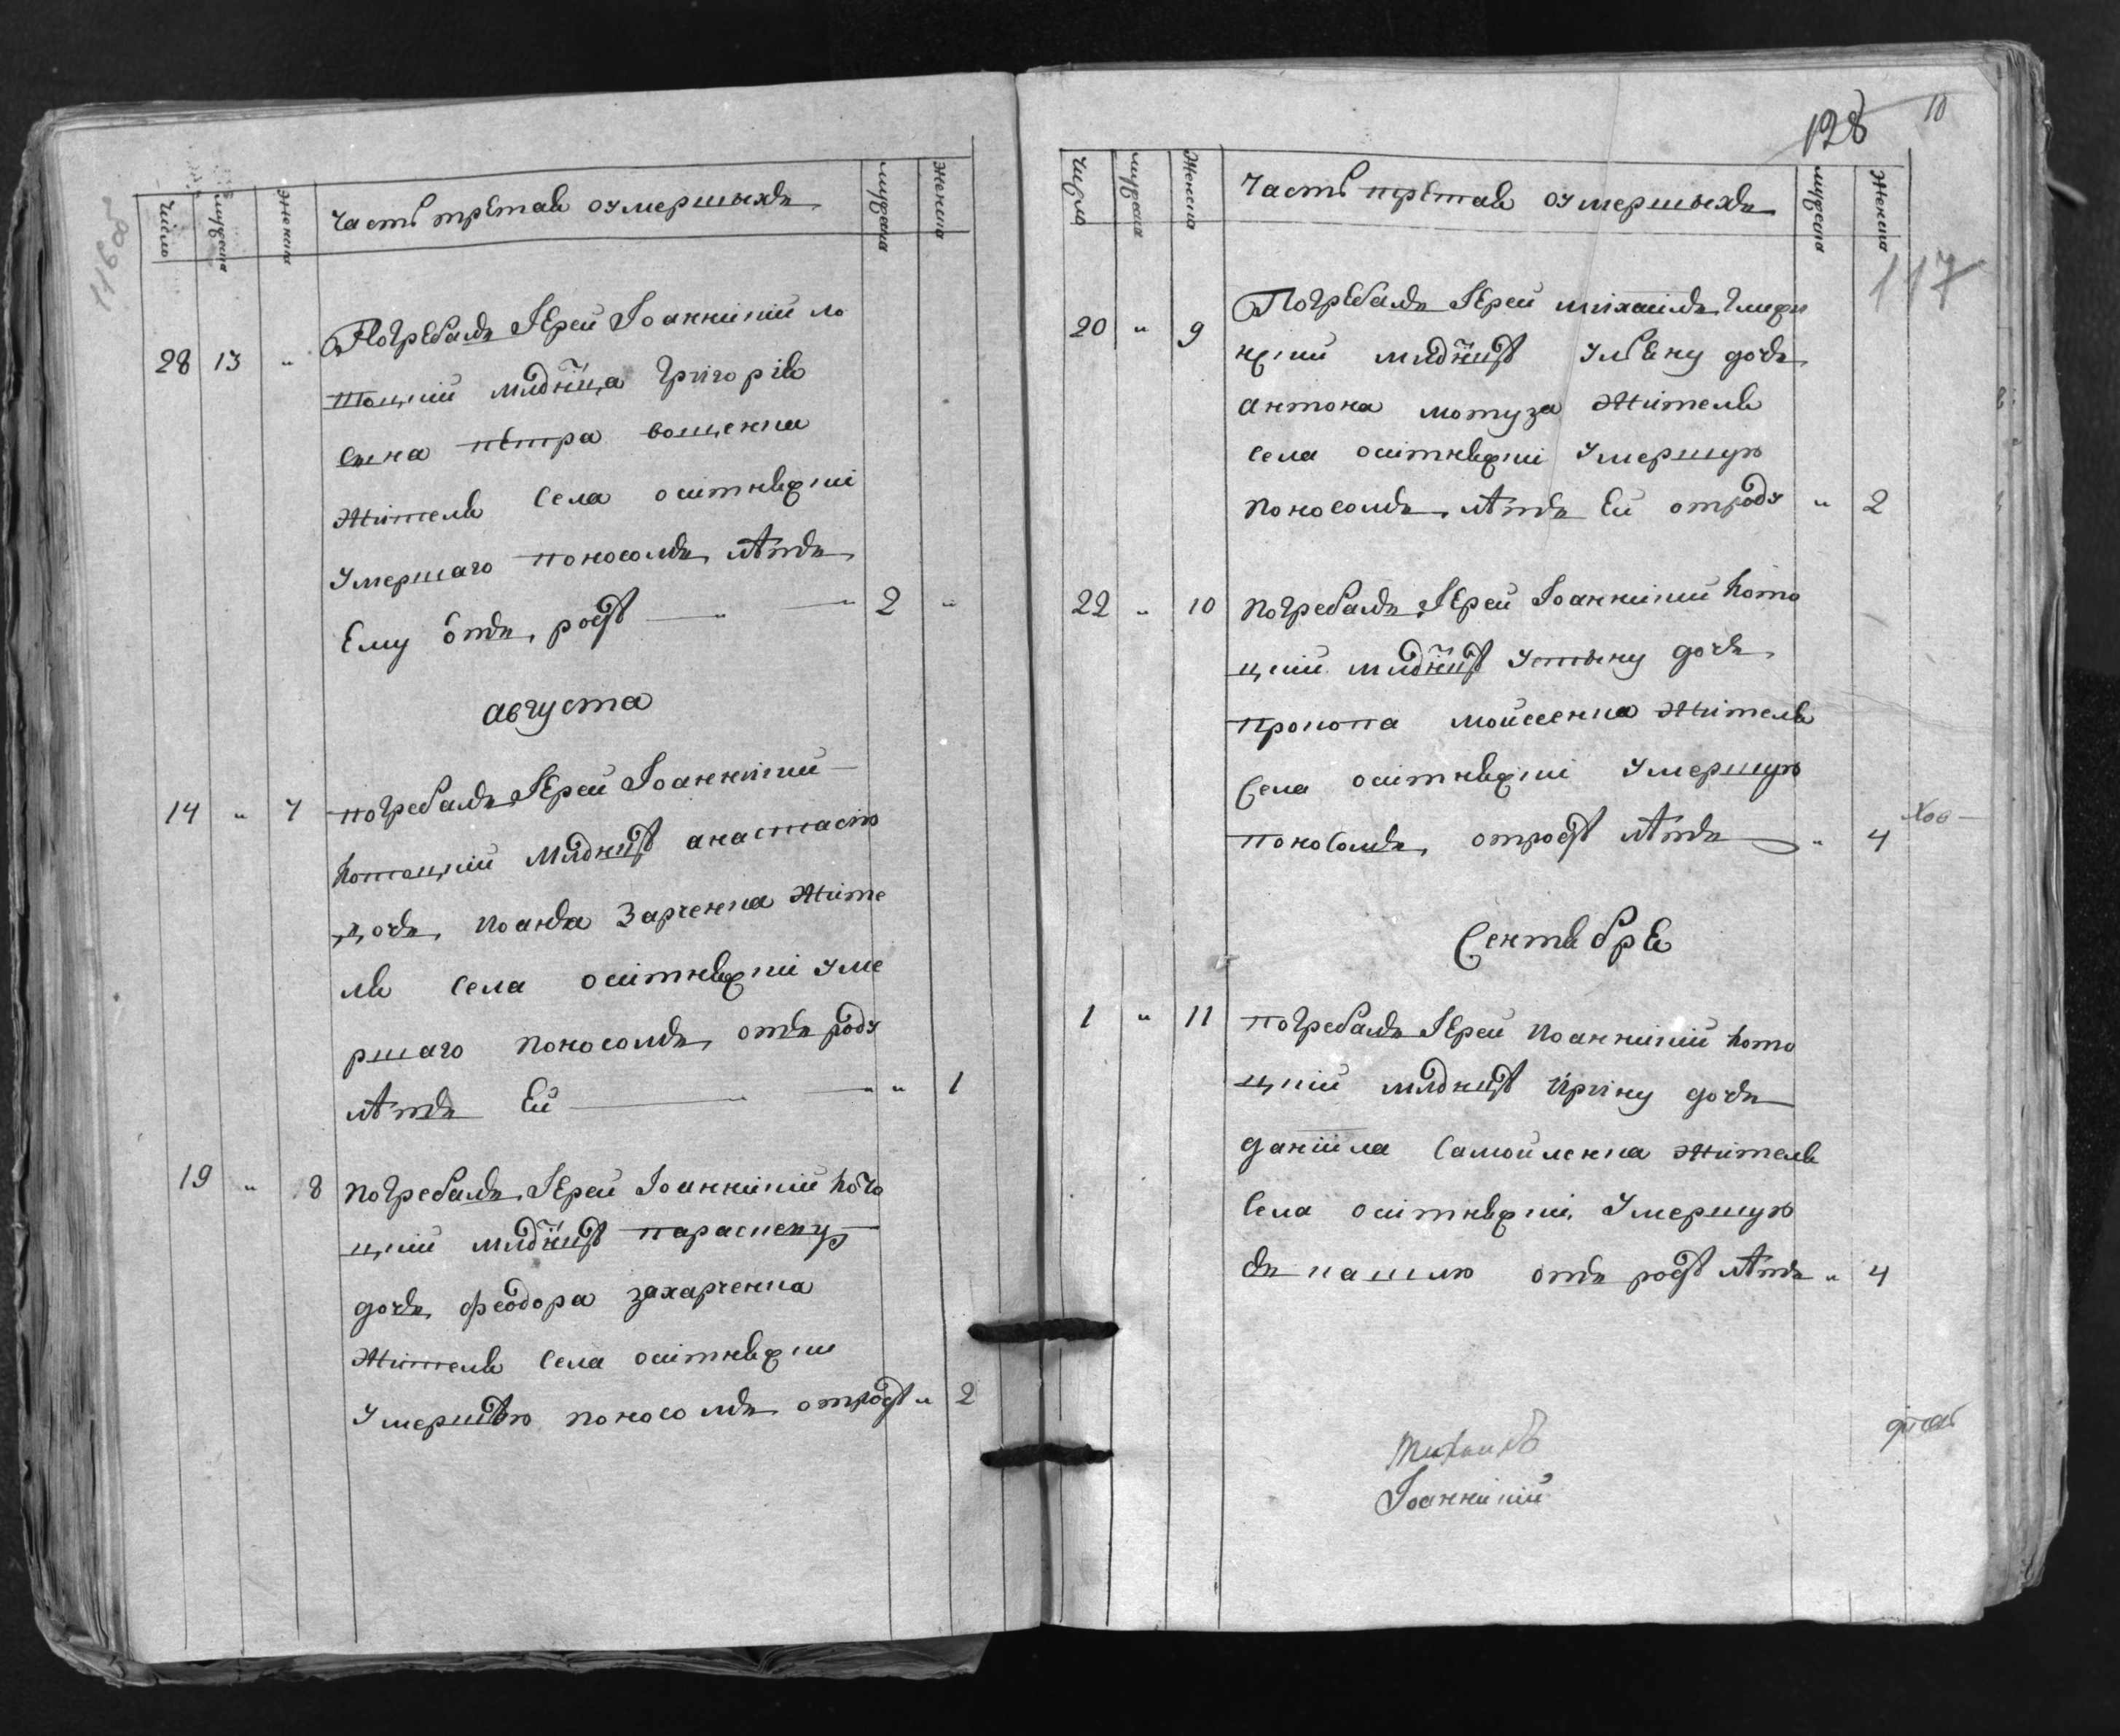 число
мужеска
женска
Часть трЕтая оумершыхъ
мужеска
женска
28 13 "
ПогрЕбалъ ІЕрей Іоанникий ко
тоцкий младнца григорія
сына пЕтра вощенка
жителя села оситняжки
умершаго поносомъ лѣтъ
Ему отъ родꙋ 2 "
августа
14 " 7
погребалъ ІЕрей Іоанникий
котоцкий младнцꙋ анастасію
дочъ иоана Зарченка жите
ля села оситняжки уме
ршаго поносомъ отъ роду
лѣтъ Ей " 1
19 " 8
погребалъ ІЕрей Іоанникий кото
цкий младнцꙋ параскеву
дочъ феодора захарченка
жителя села оситняжки
умершую поносомъ отродꙋ " 2
128
10
117
число
мужеска
женска
Часть трЕтая оумершыхъ
мужеска
женска
20 " 9
ПогрЕбалъ ІЕрей михаилъ
младнцꙋ улЕяну дочъ
антона мотуза жителя
села оситняжки умершую
поносомъ лѣтъ Ей отроду " 2
22 " 10
погребалъ ІЕрей Іоанникий кото
цкий младнцꙋ устыну дочъ
прокопа моисеенка жителя
села оситняжки умершую
поносомъ отродꙋ лѣтъ " 4
СентябрЕ
1 " 11
погребалъ ІЕрей Иоанникий кото
цкий младнцꙋ ирину дочъ
даниила самойленка жителя
села оситняжки умершую
съ кашлю отъ родꙋ лѣтъ " 4
Михаилъ
Іоанникий